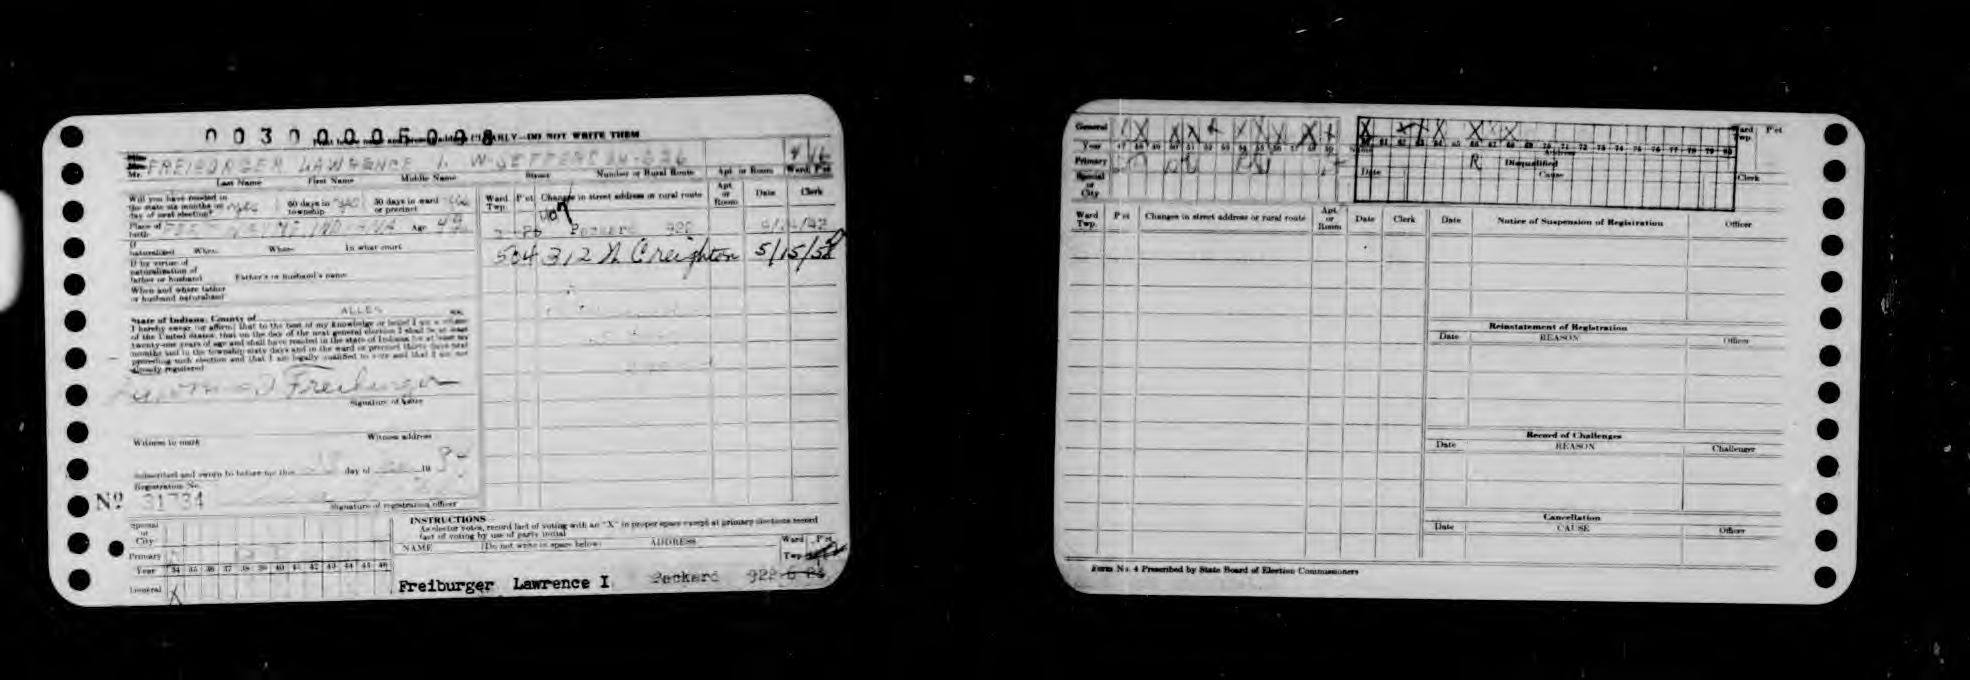 003000005098
CLEARLY—DO NOT WRITE THEM
Mr. FREIBURGER LAWRENCE I. W-JEFFERSON-626 4 16
Last Name First Name Middle Name Street Number or Rural Route Apt. or Room Ward Pct
Will you have resided in the state six months on day of next election? yes 60 days in township yes 30 days in ward or precinct yes
Place of birth FORT WAYNE INDIANA Age 49
If naturalized When Where In what court
If by virtue of naturalization of father or husband Father's or husband's name
When and where father or husband naturalized
State of Indiana: County of ALLEN ss.
I hereby swear (or affirm) that to the best of my knowledge or belief I am a citizen
of the United States; that on the day of the next general election I shall be at least
twenty-one years of age and shall have resided in the state of Indiana for at least six
months and in the township sixty days and in the ward or precinct thirty days next
preceding such election and that I am legally qualified to vote and that I am not
already registered
Lawrence I Freiburger
Signature of voter
Witness to mark Witness address
Subscribed and sworn to before me this day of 19
Registration No.
Nº 31734
Signature of registration officer
Ward Twp. P'ct Changes in street address or rural route Apt. or Room Date Clerk
407
Packard 922
504 312 W Creighton 5/15/58
Special or City
Primary
Year 34 35 36 37 38 39 40 41 42 43 44 45 46
General X
INSTRUCTIONS—
As elector votes, record fact of voting with an "X" in proper space except at primary elections record
fact of voting by use of party initial
NAME (Do not write in space below) ADDRESS Ward Twp P'ct
Freiburger Lawrence I. Packard 922
General
Year 47 48 49 50 51 52 53 54 55 56 57 58 59
Primary
Special or City
60 61 62 63 64 65 66 67 68 69 70 71 72 73 74 75 76 77 78 79 80
Name Address Ward Twp. P'ct
R Disqualified
Date Cause Clerk
Ward Twp. P'ct Changes in street address or rural route Apt. or Room Date Clerk Date Notice of Suspension of Registration Officer
Reinstatement of Registration
Date REASON Officer
Record of Challenges
Date REASON Challenger
Cancellation
Date CAUSE Officer
Form No. 4 Prescribed by State Board of Election Commissioners